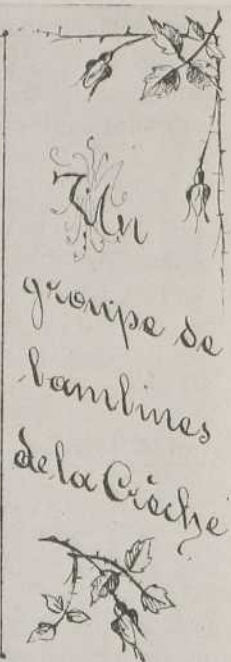 Un
groupe de
bambines
de la Crèche